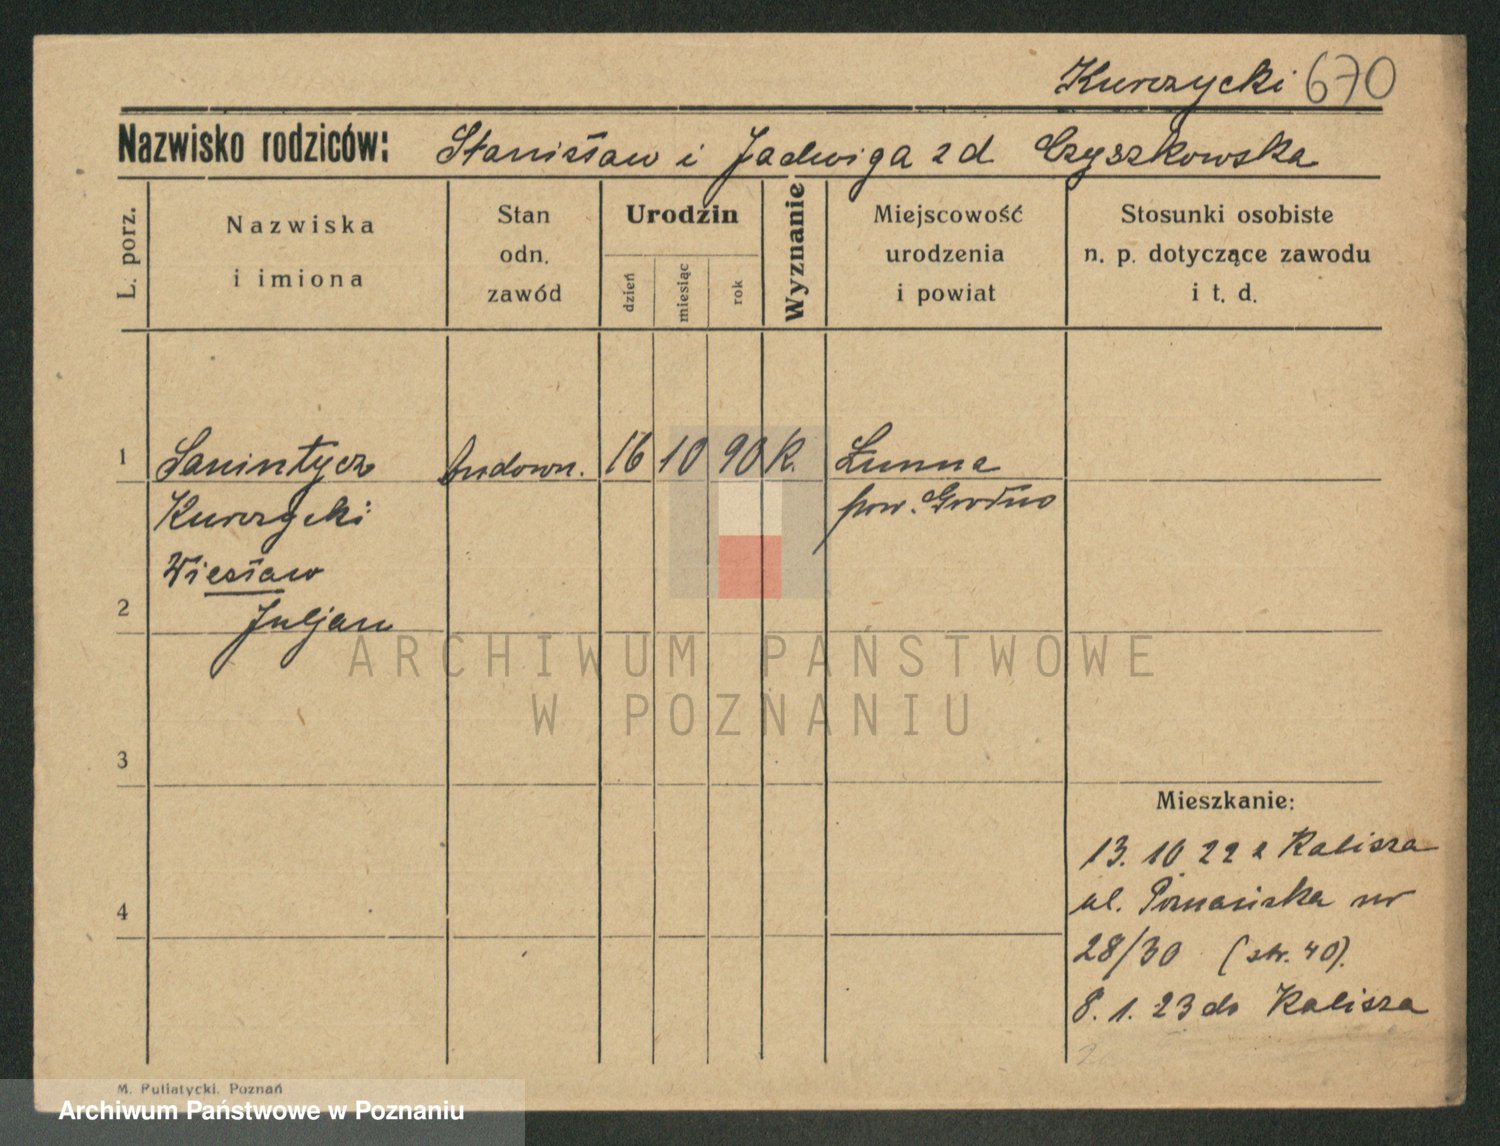 Kurczycki 670
Nazwisko rodziców: Stanisław i Jadwiga z d Czyszkowska
L. porz.
Nazwiska
i imiona
Stan
odn.
zawód
Urodzin
dzień
miesiąc
rok
Wyznanie
Miejscowość
urodzenia
i powiat
Stosunki osobiste
n. p. dotyczące zawodu
i t. d.
1 budown. 16 10 90 k. Łunna
Kurczycki pow. Grodno
Wiesław
2 Juljan
ARCHIWUM PAŃSTWOWE
W POZNANIU
3
Mieszkanie:
13. 10 22 z Kalisza
4 ul. Poznańska nr
28/30 (str. 40).
8. 1. 23 do Kalisza
M. Puliatycki. Poznań
Archiwum Państwowe w Poznaniu